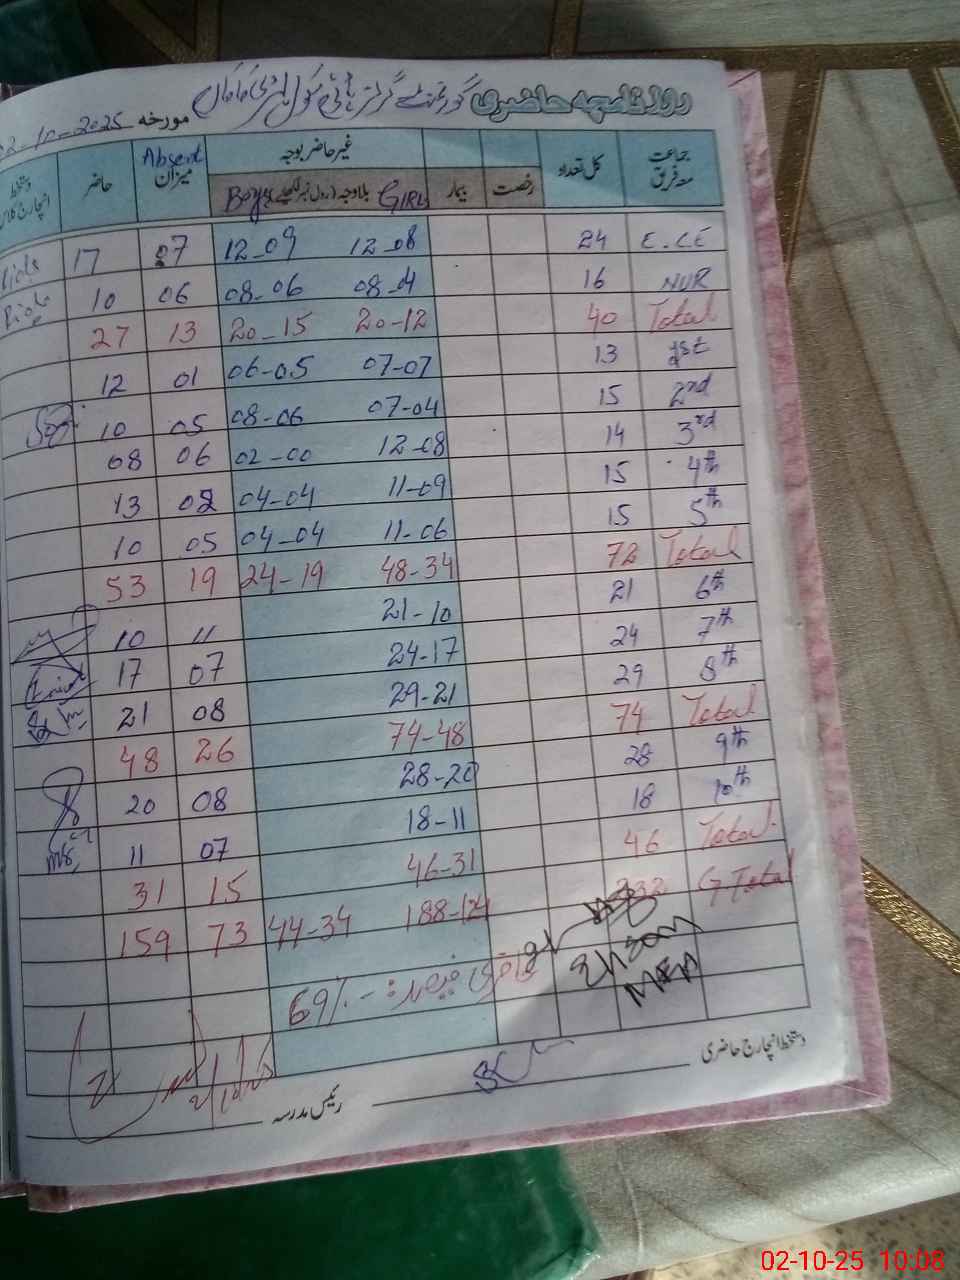 روزنامچہ حاضری گورنمنٹ گرلز ہائی سکول
مورخہ 02-10-2025
جماعت معہ فریق کل تعداد رخصت بیمار غیر حاضر بوجہ Absent میزان حاضر دستخط انچارج کلاس
GIRL بلاوجہ (رول نمبر لکھیے) Boys
E.CE 24 12-08 12-09 07 17
NUR 16 08-04 08-06 06 10
Total 40 20-12 20-15 13 27
1st 13 07-07 06-05 01 12
2nd 15 07-04 08-06 05 10
3rd 14 12-08 02-00 06 08
4th 15 11-09 04-04 02 13
5th 15 11-06 04-04 05 10
Total 72 48-34 24-19 19 53
6th 21 21-10 11 10
7th 24 24-17 07 17
8th 29 29-21 08 21
Total 74 74-48 26 48
9th 28 28-20 08 20
10th 18 18-11 07 11
Total 46 46-31 15 31
G Total 232 188-124 44-34 73 159
حاضری فیصد :- 69%
Ehsan
MEA
دستخط انچارج حاضری
رئیس مدرسہ
02-10-25 10:08